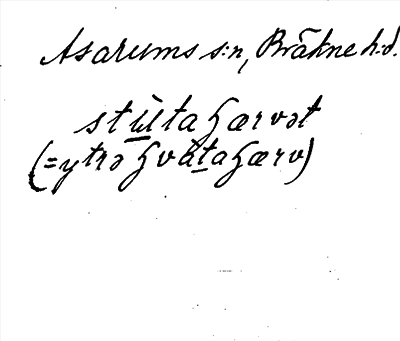 Asarums s:n, Bräkne h:d.
stù̲taɧærvət
(=ytrə ɧvàt̲aɧærv)